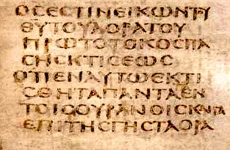 ΟϹΕϹΤΙΝΕΙΚΩΝΤΥ
ΘΥΤΟΥΑΟΡΑΤΟΥ
ΠΡΩΤΟΤΟΚΟϹΠΑ
ϹΗϹΚΤΙϹΕΩϹ
ΟΤΙΕΝΑΥΤΩΕΚΤΙ
ϹΘΗΤΑΠΑΝΤΑΕΝ
ΤΟΙϹΟΥΡΑΝΟΙϹΚΑΙΤΑ
ΕΠΙΤΗϹΓΗϹΤΑΟΡΑ